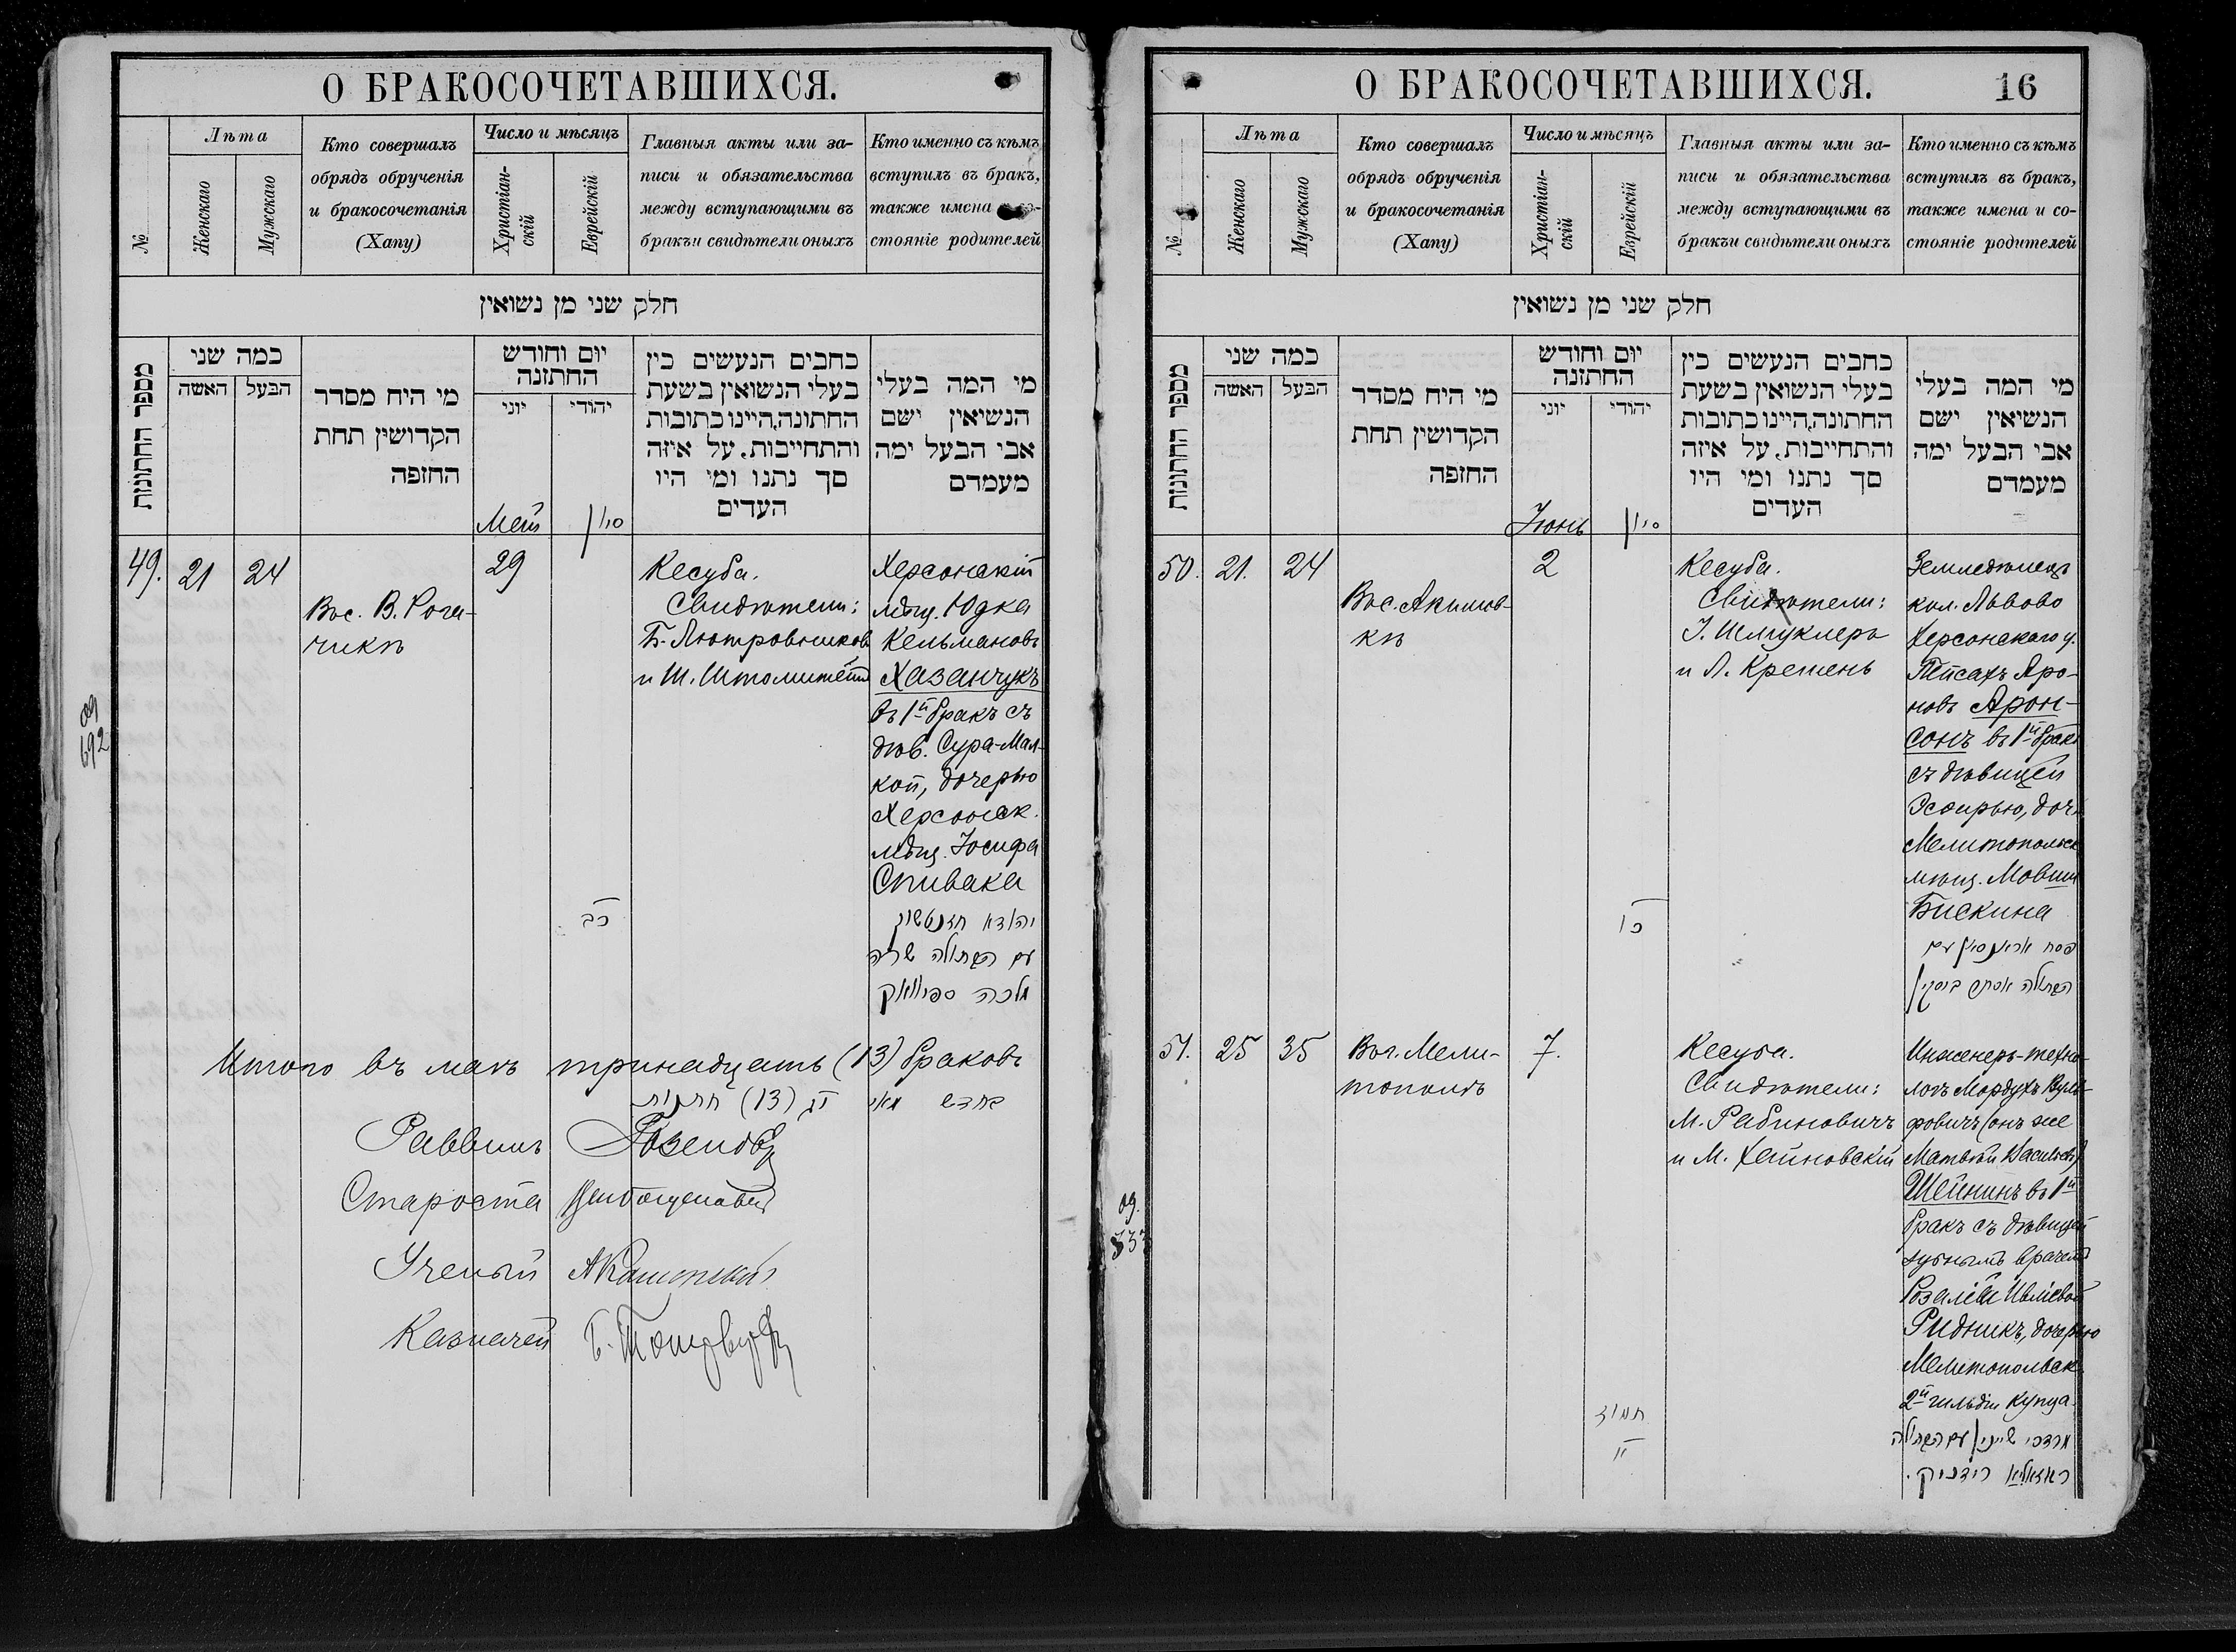 О БРАКОСОЧЕТАВШИХСЯ.
№
Лѣта
Женскаго
Мужскаго
Кто совершалъ
обрядъ обрученія
и бракосочетанія
(Хапу)
Число и мѣсяцъ
Христіан-
скій
Еврейскій
Главныя акты или за-
писи и обязательства
между вступающими въ
бракъ и свидѣтели оныхъ
Кто именно съ кѣмъ
вступилъ въ бракъ,
также имена
стояніе родителей
חלק שני מן נשואין
מספר החתונות
כמה שני
האשה
הבעל
מי היח מסדר
הקדושין תחת
החזפה
יום וחודש
החתזנה
יוני
יהודי
כחבים הנעשים כין
בעלי הנשואין בשעת
החתונה,היינו כתובות
והתחייבות, על איזה
סך נתנו ומי היו
העדים
מי המה בעלי
הנשיאין ישם
אבי הבעל ימה
מעמדם
Май
סיון
49.
21
24
Вос. В. Рога-
чикъ
29
כב
Кесуба.
Свидѣтели:
и Ш.
Херсонскій
мѣщ. Юдка
Кельмановъ
Хазанчукъ
въ 1й бракъ съ
дѣв. Сура-Мал-
кой, дочерью
Херсонск.
мѣщ. Іосифа
Спивака
יהודא חזנטשוק
עם הבתולה שרה
מלכה ספיוואק
692
Итого въ маѣ тринадцать (13) браковъ
בחדש מאי יג (13) חתנות
Раввинъ
Староста
Ученый
Казначей
О БРАКОСОЧЕТАВШИХСЯ.
16
№
Лѣта
Женскаго
Мужскаго
Кто совершалъ
обрядъ обрученія
и бракосочетанія
(Хапу)
Число и мѣсяцъ
Христіан-
скій
Еврейскій
Главныя акты или за-
писи и обязательства
между вступающими въ
бракъ и свидѣтели оныхъ
Кто именно съ кѣмъ
вступилъ въ бракъ,
также имена и со-
стояніе родителей
חלק שני מן נשואין
מספר החתונות
כמה שני
האשה
הבעל
מי היח מסדר
הקדושין תחת
החזפה
יום וחודש
החתזנה
יוני
יהודי
כחבים הנעשים כין
בעלי הנשואין בשעת
החתונה,היינו כתובות
והתחייבות, על איזה
סך נתנו ומי היו
העדים
מי המה בעלי
הנשיאין ישם
אבי הבעל ימה
מעמדם
Іюнь
סיון
50.
21.
24
Вос. Акимов-
кѣ
2
כו
Кесуба.
Свидѣтели:
І. Шмуклеръ
и Л. Кремень
Земледѣлецъ
кол. Львово
Херсонскаго у.
Пейсахъ Аро-
новъ Арон-
сонъ въ 1й бракъ
съ дѣвицей
Эсѳирью, доч.
Мелитопольск.
мѣщ. Мовши
Бискина
פסח אראנסאן עם
הבתולה אסתר ביסקין
51.
25
35
Вог. Мели-
тополѣ
7.
תמוז
יו
Кесуба.
Свидѣтели:
М. Рабиновичъ
и М. Хайновскій
Инженеръ-техно-
логъ Мордухъ Вуль-
фовичъ (онъ же
Матвѣй Васильев.)
Шейнинъ въ 1й
бракъ съ дѣвицей
зубнымъ врачемъ
Розаліей
Ридникъ, дочерью
Мелитопольск.
2й гильдіи купца.
מרדכי שיינין עם הבתולה
ראזאליא רידניק.
533